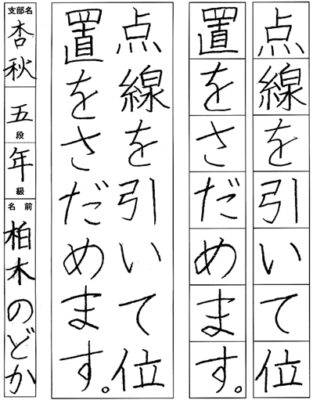 点線を引いて位
置をさだめます。
点線を引いて位
置をさだめます。
支部名
杏秋
五
段
年
級
名前
柏木のどか